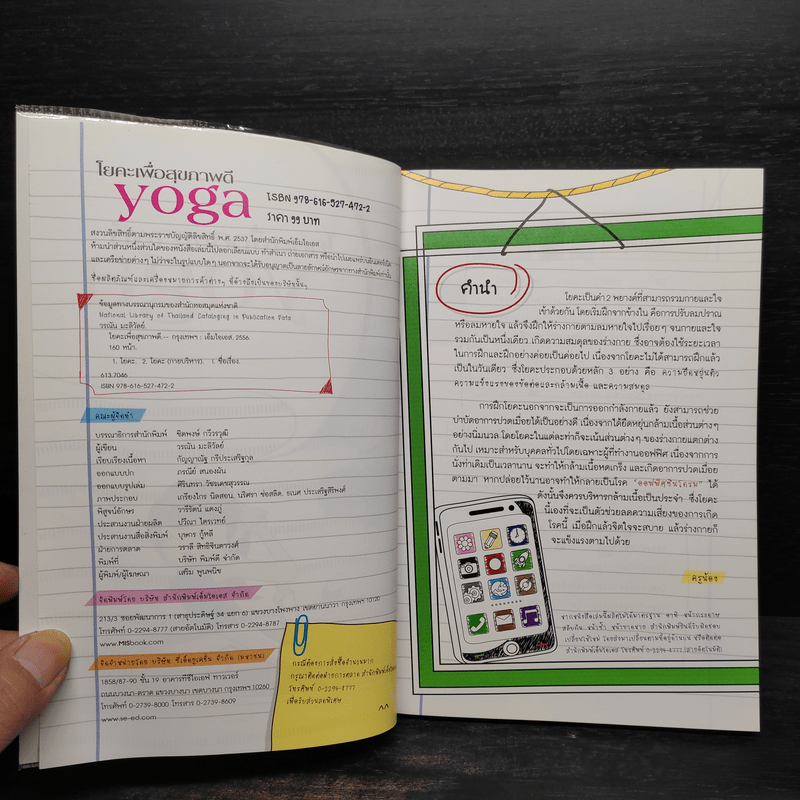 โยคะเพื่อสุขภาพดี
yoga
ISBN 978-616-527-472-2
ราคา 99 บาท
สงวนลิขสิทธิ์ตามพระราชบัญญัติลิขสิทธิ์ พ.ศ. 2537 โดยสำนักพิมพ์เอ็มไอเอส
ห้ามนำส่วนหนึ่งส่วนใดของหนังสือเล่มนี้ไปลอกเลียนแบบ ทำสำเนา ถ่ายเอกสาร หรือนำไปเผยแพร่บนอินเตอร์เน็ต
และเครือข่ายต่างๆ ไม่ว่าจะในรูปแบบใดๆ นอกจากจะได้รับอนุญาตเป็นลายลักษณ์อักษรจากทางสำนักพิมพ์เท่านั้น
ชื่อผลิตภัณฑ์และเครื่องหมายการค้าต่างๆ ที่อ้างถึงเป็นของบริษัทนั้นๆ
ข้อมูลทางบรรณานุกรมของสำนักหอสมุดแห่งชาติ
National Library of Thailand Cataloging in Publication Data
วรณัน มะลิวัลย์.
โยคะเพื่อสุขภาพดี.-- กรุงเทพฯ : เอ็มไอเอส, 2556.
160 หน้า.
1. โยคะ. 2. โยคะ (กายบริหาร). I. ชื่อเรื่อง.
613.7046
ISBN 978-616-527-472-2
คณะผู้จัดทำ
บรรณาธิการสำนักพิมพ์ ชิตพงษ์ กวีวรวุฒิ
ผู้เขียน วรณัน มะลิวัลย์
เรียบเรียงเนื้อหา กัญญาณัฐ กรีประเสริฐกุล
ออกแบบปก ภรณีย์ สนองผัน
ออกแบบรูปเล่ม ศิรินทรา วัชรเดชสุวรรณ
ภาพประกอบ เกรียงไกร นิลสอน, ปริศรา ช่อสลิด, ธเนศ ประเสริฐสิริพงศ์
พิสูจน์อักษร วารีรัตน์ แตงภู่
ประสานงานฝ่ายผลิต ปวีณา ไตรเวทย์
ประสานงานสื่อสิ่งพิมพ์ บุษกร กู้หลี
ฝ่ายการตลาด วราลี สิทธิจินดาวงศ์
พิมพ์ที่ บริษัท พิมพ์ดี จำกัด
ผู้พิมพ์/ผู้โฆษณา เสริม พูนพนิช
จัดพิมพ์โดย บริษัท สำนักพิมพ์เอ็มไอเอส จำกัด
213/3 ซอยพัฒนาการ 1 (สาธุประดิษฐ์ 34 แยก 6) แขวงบางโพงพาง เขตยานนาวา กรุงเทพฯ 10120
โทรศัพท์ 0-2294-8777 (สายอัตโนมัติ) โทรสาร 0-2294-8787
www.MISbook.com
จัดจำหน่ายโดย บริษัท ซีเอ็ดยูเคชั่น จำกัด (มหาชน)
1858/87-90 ชั้น 19 อาคารทีซีไอเอฟ ทาวเวอร์
ถนนบางนา-ตราด แขวงบางนา เขตบางนา กรุงเทพฯ 10260
โทรศัพท์ 0-2739-8000 โทรสาร 0-2739-8609
www.se-ed.com
กรณีต้องการสั่งซื้อจำนวนมาก
กรุณาติดต่อฝ่ายการตลาด สำนักพิมพ์
โทรศัพท์ 0-2294-8777
เพื่อรับส่วนลดพิเศษ
^^
คำนำ
โยคะเป็นคำ 2 พยางค์ที่สามารถรวมกายและใจ
เข้าด้วยกัน โดยเริ่มฝึกจากข้างใน คือการปรับลมปราณ
หรือลมหายใจ แล้วจึงฝึกให้ร่างกายตามลมหายใจไปเรื่อยๆ จนกายและใจ
รวมกันเป็นหนึ่งเดียว เกิดความสมดุลของร่างกาย ซึ่งอาจต้องใช้ระยะเวลา
ในการฝึกและฝึกอย่างค่อยเป็นค่อยไป เนื่องจากโยคะไม่ได้สามารถฝึกแล้ว
เป็นในวันเดียว ซึ่งโยคะประกอบด้วยหลัก 3 อย่าง คือ ความยืดหยุ่นตัว
ความแข็งแรงของข้อต่อและกล้ามเนื้อ และความสมดุล
การฝึกโยคะนอกจากจะเป็นการออกกำลังกายแล้ว ยังสามารถช่วย
บำบัดอาการปวดเมื่อยได้เป็นอย่างดี เนื่องจากได้ยืดหยุ่นกล้ามเนื้อส่วนต่างๆ
อย่างนิ่มนวล โดยโยคะในแต่ละท่าก็จะเน้นส่วนต่างๆ ของร่างกายแตกต่าง
กันไป เหมาะสำหรับบุคคลทั่วไปโดยเฉพาะผู้ที่ทำงานออฟฟิศ เนื่องจากการ
นั่งทำเดิมเป็นเวลานาน จะทำให้กล้ามเนื้อหดเกร็ง และเกิดอาการปวดเมื่อย
ตามมา หากปล่อยไว้นานอาจทำให้กลายเป็นโรค "ออฟฟิศซินโดรม" ได้
ดังนั้นจึงควรบริหารกล้ามเนื้อเป็นประจำ ซึ่งโยคะ
นี้เองที่จะเป็นตัวช่วยลดความเสี่ยงของการเกิด
โรคนี้ เมื่อฝึกแล้วจิตใจจะสบาย แล้วร่างกายก็
จะแข็งแรงตามไปด้วย
ครูน้อง
หากหนังสือเล่มนี้ผลิตไม่ได้มาตรฐาน อาทิ